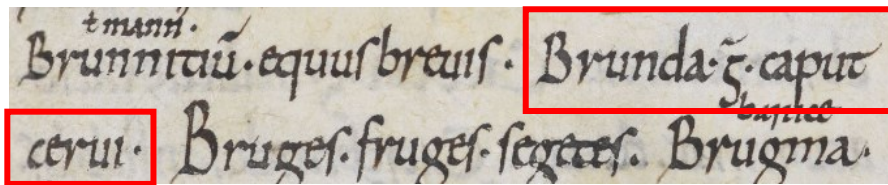 ł mann̄.
Brunnitiū · equus breuis · Brunda · ḡ · caput
basilice
cerui · Bruges · fruges · segetes. Brugma ·